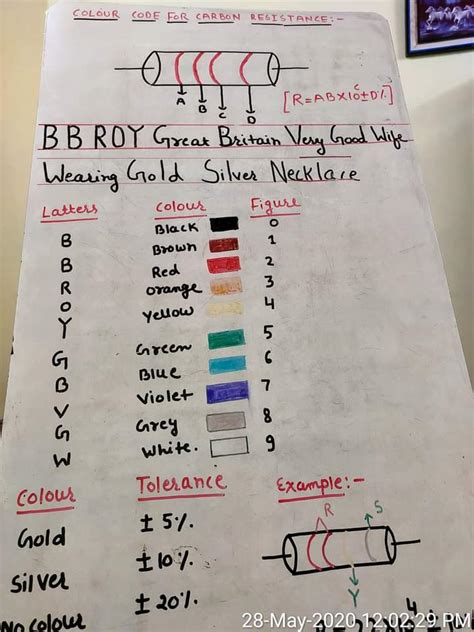 COLOUR CODE FOR CARBON RESISTANCE:-
A B C D
[R=ABX10^C±D%]
BBROY Great Britain Very Good Wife
Wearing Gold Silver Necklace
Latters Colour Figure
B Black 0
B Brown 1
R Red 2
O Orange 3
Y Yellow 4
G Green 5
B Blue 6
V Violet 7
G Grey 8
W White. 9
Colour Tolerance Example:-
Gold ±5%.
Silver ±10%.
No Colour ±20%.
R S
Y
28-May-2020 12:02:29 PM